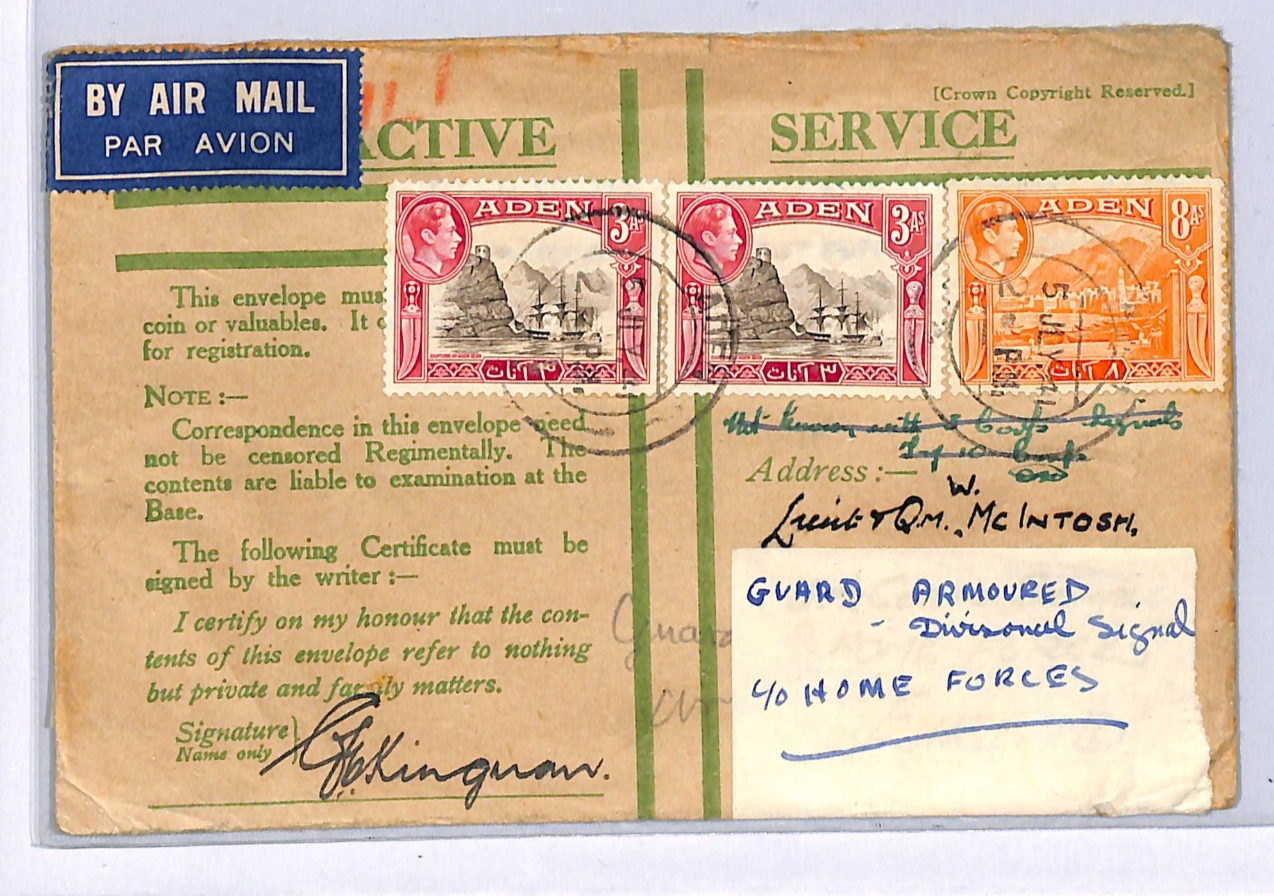 BY AIR MAIL
PAR AVION
ACTIVE SERVICE
[Crown Copyright Reserved.]
ADEN 3 AS
ADEN 3 AS
ADEN 8 AS
٣ آنات
٣ آنات
٨ آنات
5 JLY 41
2 P.M.
This envelope mus
coin or valuables. It c
for registration.
NOTE :—
Correspondence in this envelope need
not be censored Regimentally. The
contents are liable to examination at the
Base.
The following Certificate must be
signed by the writer :—
I certify on my honour that the con-
tents of this envelope refer to nothing
but private and family matters.
Signature}
Name only
Not known with 8 Corps Signals
Address :—
W.
Lieut & QM. MCINTOSH.
GUARD ARMOURED
- Divisonal Signal
c/o HOME FORCES
Guard